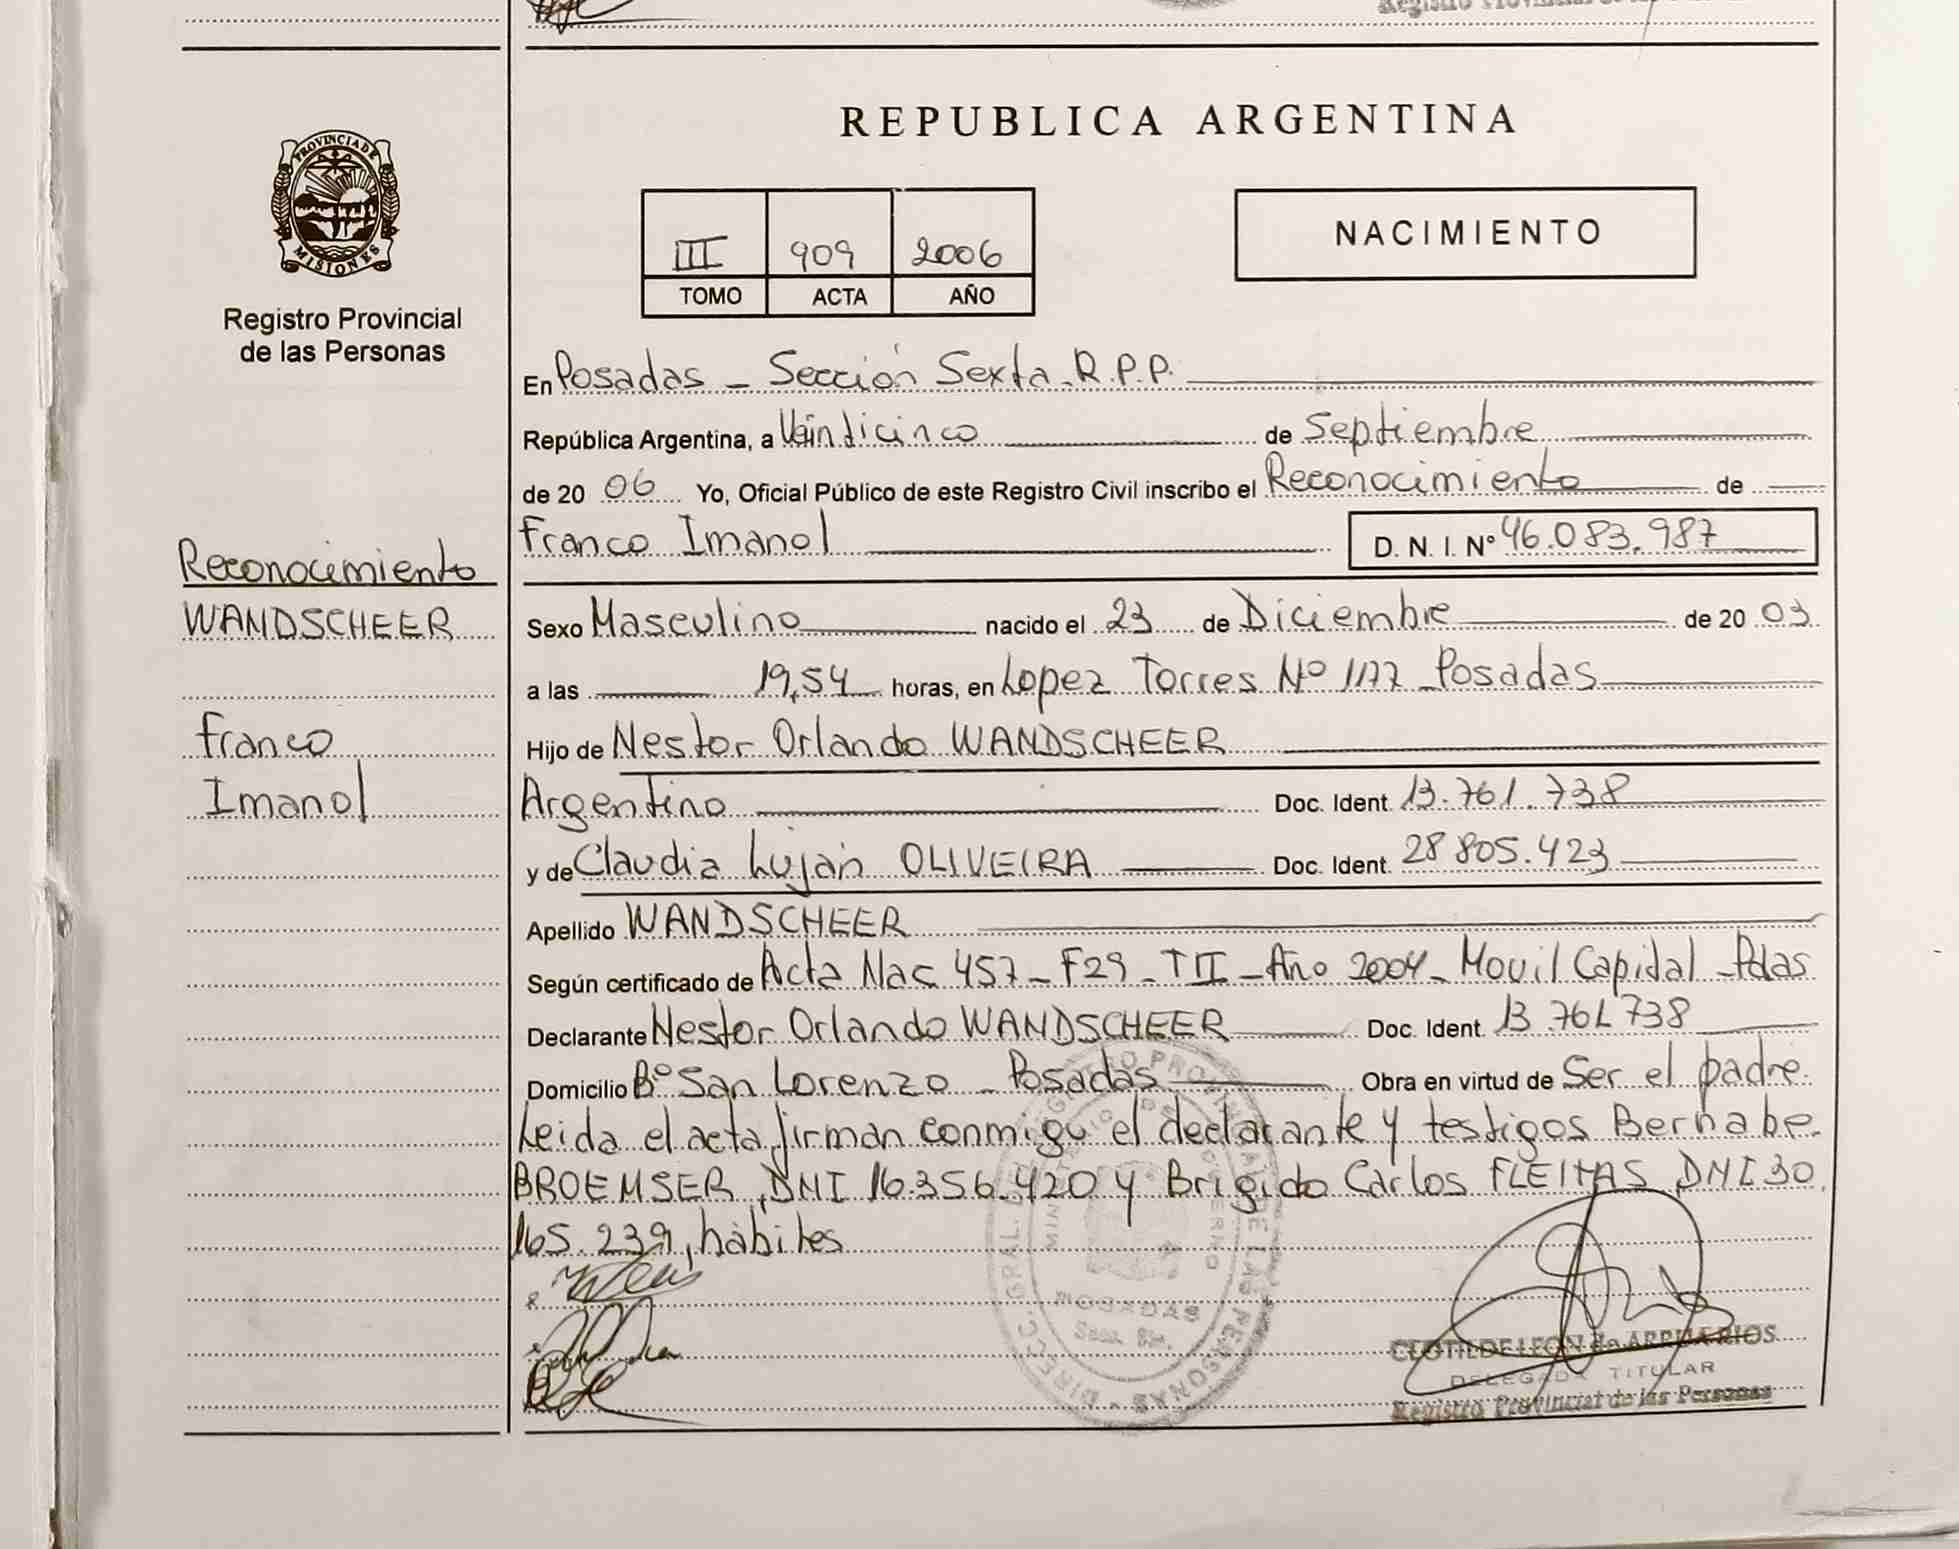 Registro Provincial de las Personas
PROVINCIA DE
MISIONES
Registro Provincial
de las Personas
REPUBLICA ARGENTINA
III 909 2006
TOMO ACTA AÑO
NACIMIENTO
En Posadas - Sección Sexta. R.P.P.
República Argentina, a Veindicinco de Septiembre
de 20 06 Yo, Oficial Público de este Registro Civil inscribo el Reconocimiento de
Franco Imanol D. N. I. Nº 46.083.987
Reconocimiento
WANDSCHEER
Franco
Imanol
Sexo Masculino nacido el 23 de Diciembre de 20 03
a las 19,54 horas, en Lopez Torres Nº 1177 Posadas
Hijo de Nestor Orlando WANDSCHEER
Argentino Doc. Ident. 13.761.738
y de Claudia Luján OLIVEIRA Doc. Ident. 28 805.423
Apellido WANDSCHEER
Según certificado de Acta Nac 457 - F29 - TII - Año 2004 - Movil Capital - Pdas
Declarante Nestor Orlando WANDSCHEER Doc. Ident. 13.761 738
Domicilio Bº San Lorenzo - Posadas Obra en virtud de Ser el padre.
Leida el acta, firman conmigo el declarante y testigos Bernabe
BROEMSER, DNI 16.356.420 y Brigido Carlos FLEITAS DNI 30.
165.239, hábiles
DIRECC. GRAL. DEL REGISTRO PROVINCIAL DE LAS PERSONAS
MINISTERIO DE GOBIERNO
POSADAS
CLOTILDE LEON de
DELEGADA TITULAR
Registro Provincial de las Personas